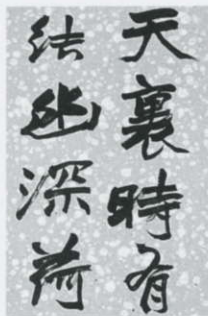 天裏時有
结幽深荷